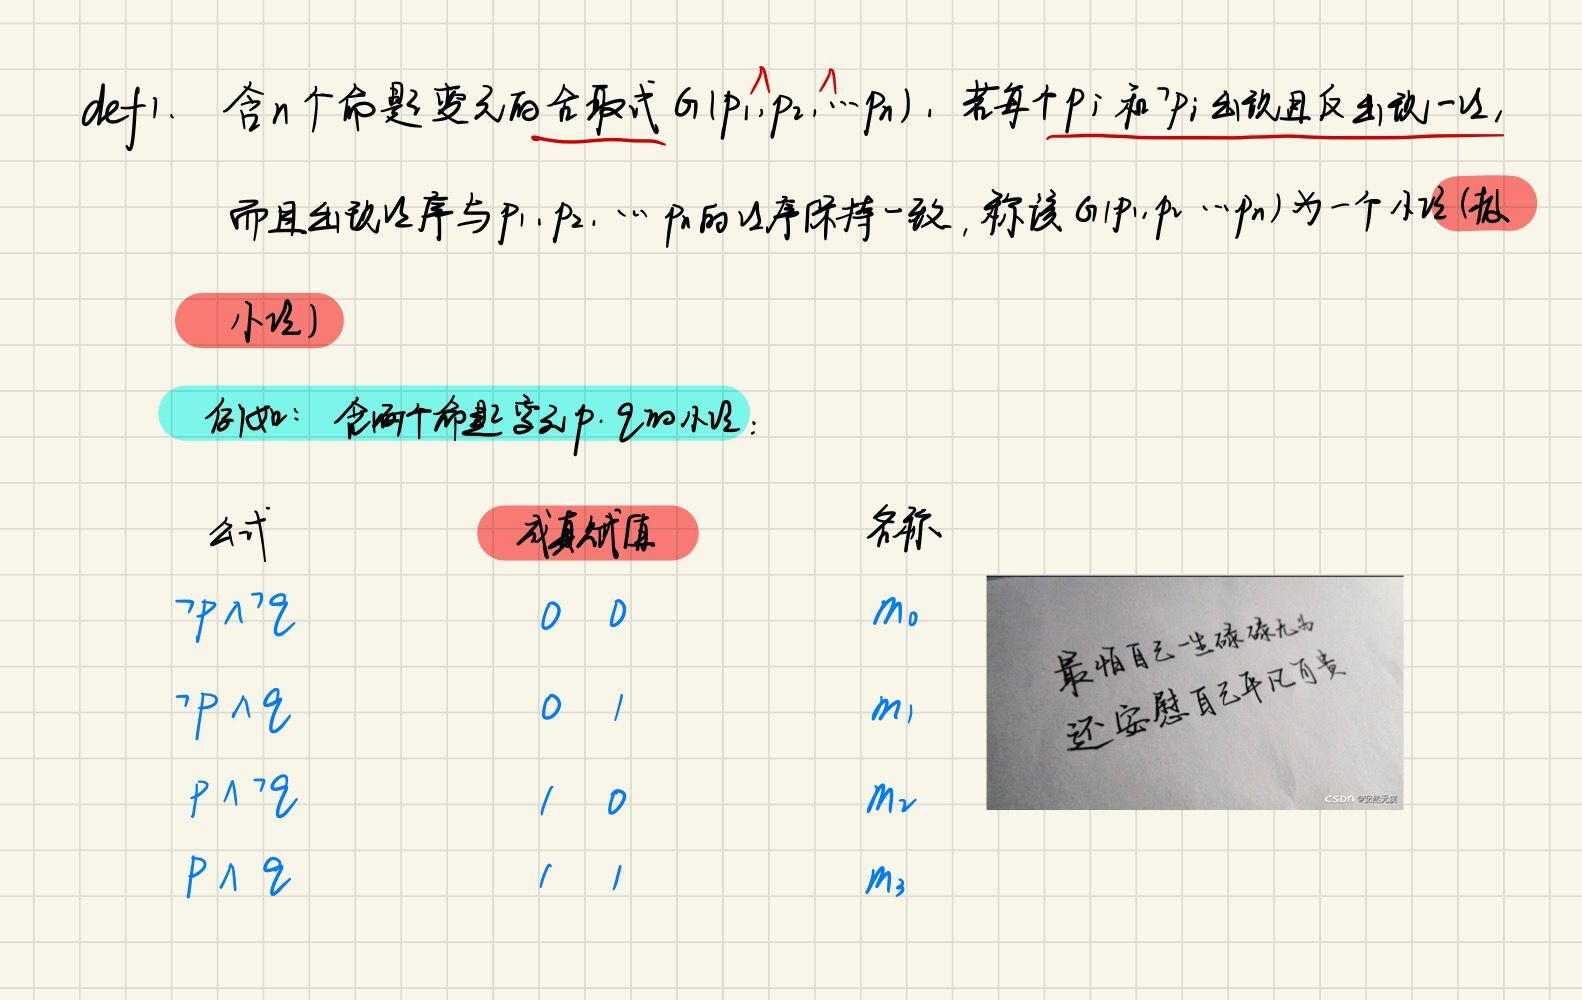 def1. 含n个命题变元的合取式G(p₁,p₂,…pₙ),若每个pᵢ和¬pᵢ出现且仅出现一次,
∧ ∧
而且出现次序与p₁,p₂,…pₙ的次序保持一致,称该G(p₁,p₂…pₙ)为一个小项(极
小项)
例如:含两个命题变元p.q的小项:
公式 成真赋值 名称
¬p∧¬q 0 0 m₀
¬p∧q 0 1 m₁
p∧¬q 1 0 m₂
p∧q 1 1 m₃
最怕自己一生碌碌无为
还安慰自己平凡可贵
CSDN @安然无虞